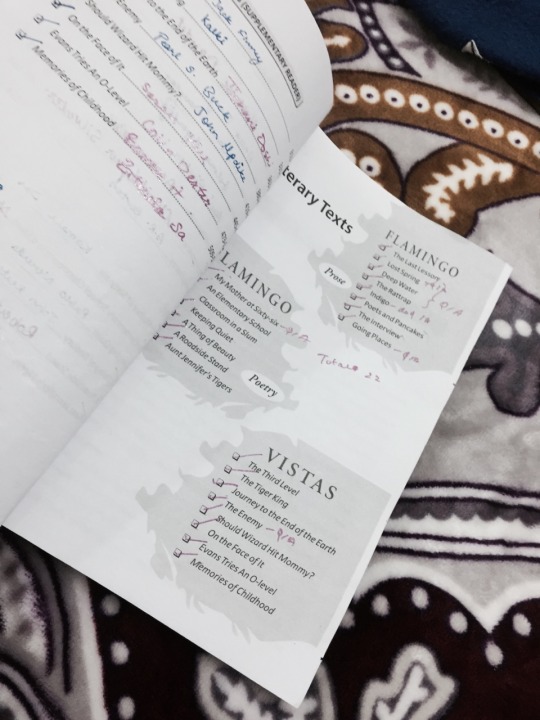 (SUPPLEMENTARY READER)
Jack Finney
Kalki
to the End of the Earth
Enemy
Pearl S. Buck
Should Wizard Hit Mommy?
John Updike
On the Face of It
Evans Tries An O-Level
Colin Dexter
Memories of Childhood
terary Texts
FLAMINGO
Prose
The Last Lesson
Lost Spring
Deep Water
The Rattrap
Q/A
Indigo
Poets and Pancakes
The Interview
Going Places
LAMINGO
My Mother at Sixty-six
An Elementary School
Classroom in a Slum
Keeping Quiet
A Thing of Beauty
A Roadside Stand
Aunt Jennifer's Tigers
Poetry
22
VISTAS
The Third Level
The Tiger King
Journey to the End of the Earth
The Enemy - Q/A
Should Wizard Hit Mommy?
On the Face of It
Evans Tries An O-level
Memories of Childhood